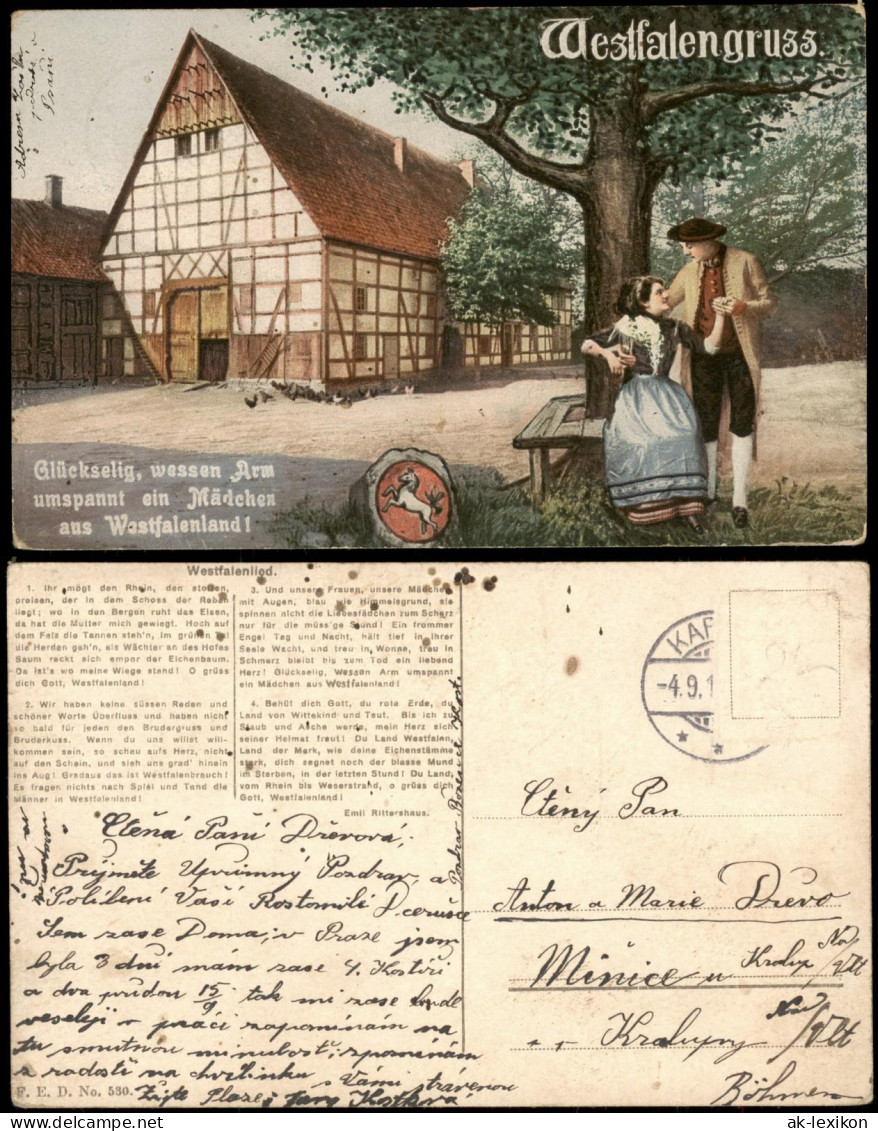 Westfalengruss.
Adresa
Glückselig, wessen Arm
umspannt ein Mädchen
aus Westfalenland!
Westfalenlied.
1. Ihr mögt den Rhein, den stolzen,
preisen, der in dem Schoss der Reben
liegt; wo in den Bergen ruht das Eisen,
da hat die Mutter mich gewiegt. Hoch auf
dem Fels die Tannen steh'n, im grünen Tal
die Herden geh'n, als Wächter an des Hofes
Saum reckt sich empor der Eichenbaum.
Da ist's wo meine Wiege stand! O grüss
dich Gott, Westfalenland!
2. Wir haben keine süssen Reden und
schöner Worte Überfluss und haben nicht
so bald für jeden den Brudergruss und
Bruderkuss. Wenn du uns willst will-
kommen sein, so schau aufs Herz, nicht
auf den Schein, und sieh uns grad' hinein
ins Aug! Gradaus das ist Westfalenbrauch!
Es fragen nichts nach Spiel und Tand die
Männer in Westfalenland!
3. Und unsere Frauen, unsere Mädchen
mit Augen, blau wie Himmelsgrund, sie
spinnen nicht die Liebesfädchen zum Scherz
nur für die müss'ge Stund! Ein frommer
Engel Tag und Nacht, hält tief in ihrer
Seele Wacht, und treu in Wonne, treu in
Schmerz bleibt bis zum Tod ein liebend
Herz! Glückselig, Wessen Arm umspannt
ein Mädchen aus Westfalenland!
4. Behüt dich Gott, du rote Erde, du
Land von Wittekind und Teut. Bis ich zu
Staub und Asche werde, mein Herz sich
seiner Heimat freut! Du Land Westfalen,
Land der Mark, wie deine Eichenstämme
stark, dich segnet noch der blasse Mund
im Sterben, in der letzten Stund! Du Land,
vom Rhein bis Weserstrand, o grüss dich
Gott, Westfalenland!
Emil Rittershaus.
Ctěná Paní Dřevová,
Prijmete Upřimný Pozdrav a
Políbení Vaší Rostomilí Dcerušce
Sem zase Doma, v Praze jsem
byla 3 dní mám zase 4. Kostíři
a dva přidou 15/9 tak mi zase bude
veseleji v práci zapomínám na
tu smutnou minulost, zpomínám
z radosti na chvilinku s Vámi strávenou
F. E. D. No. 530.
KAP
-4.9.1
Ctěný Pan
Anton a Marie Dřevo
Minice u Kralup
Kralupy
Böhmen
ak-lexikon